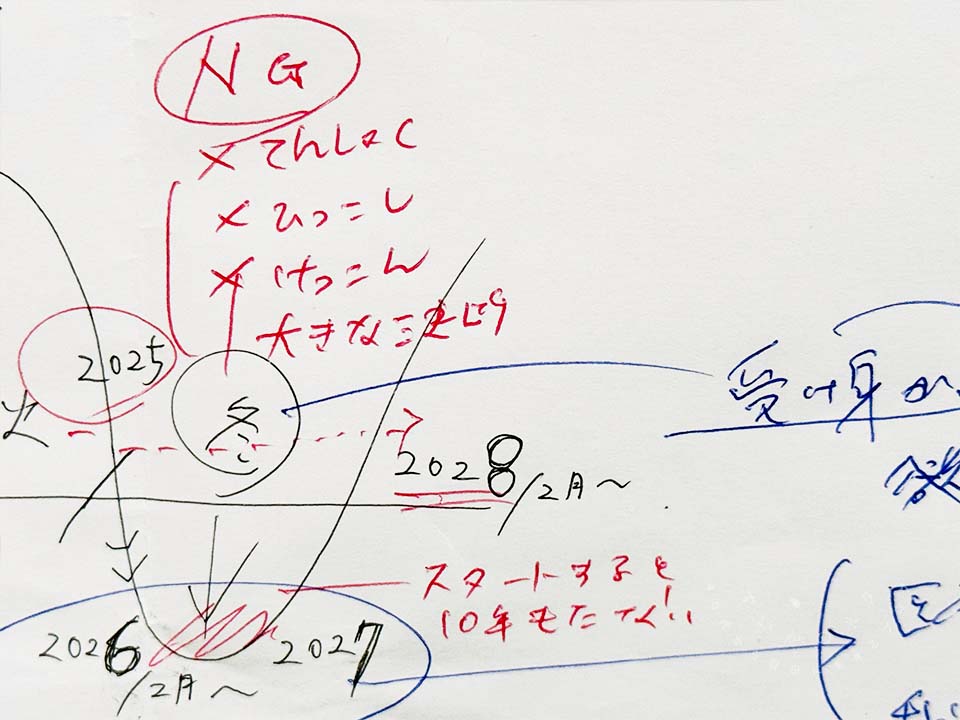 NG
×てんしょく
×ひっこし
×けっこん
大きなこと
2025
冬
受け身
2028
/2月〜
スタートすると
10年もたない!!
2026
/2月〜
2027